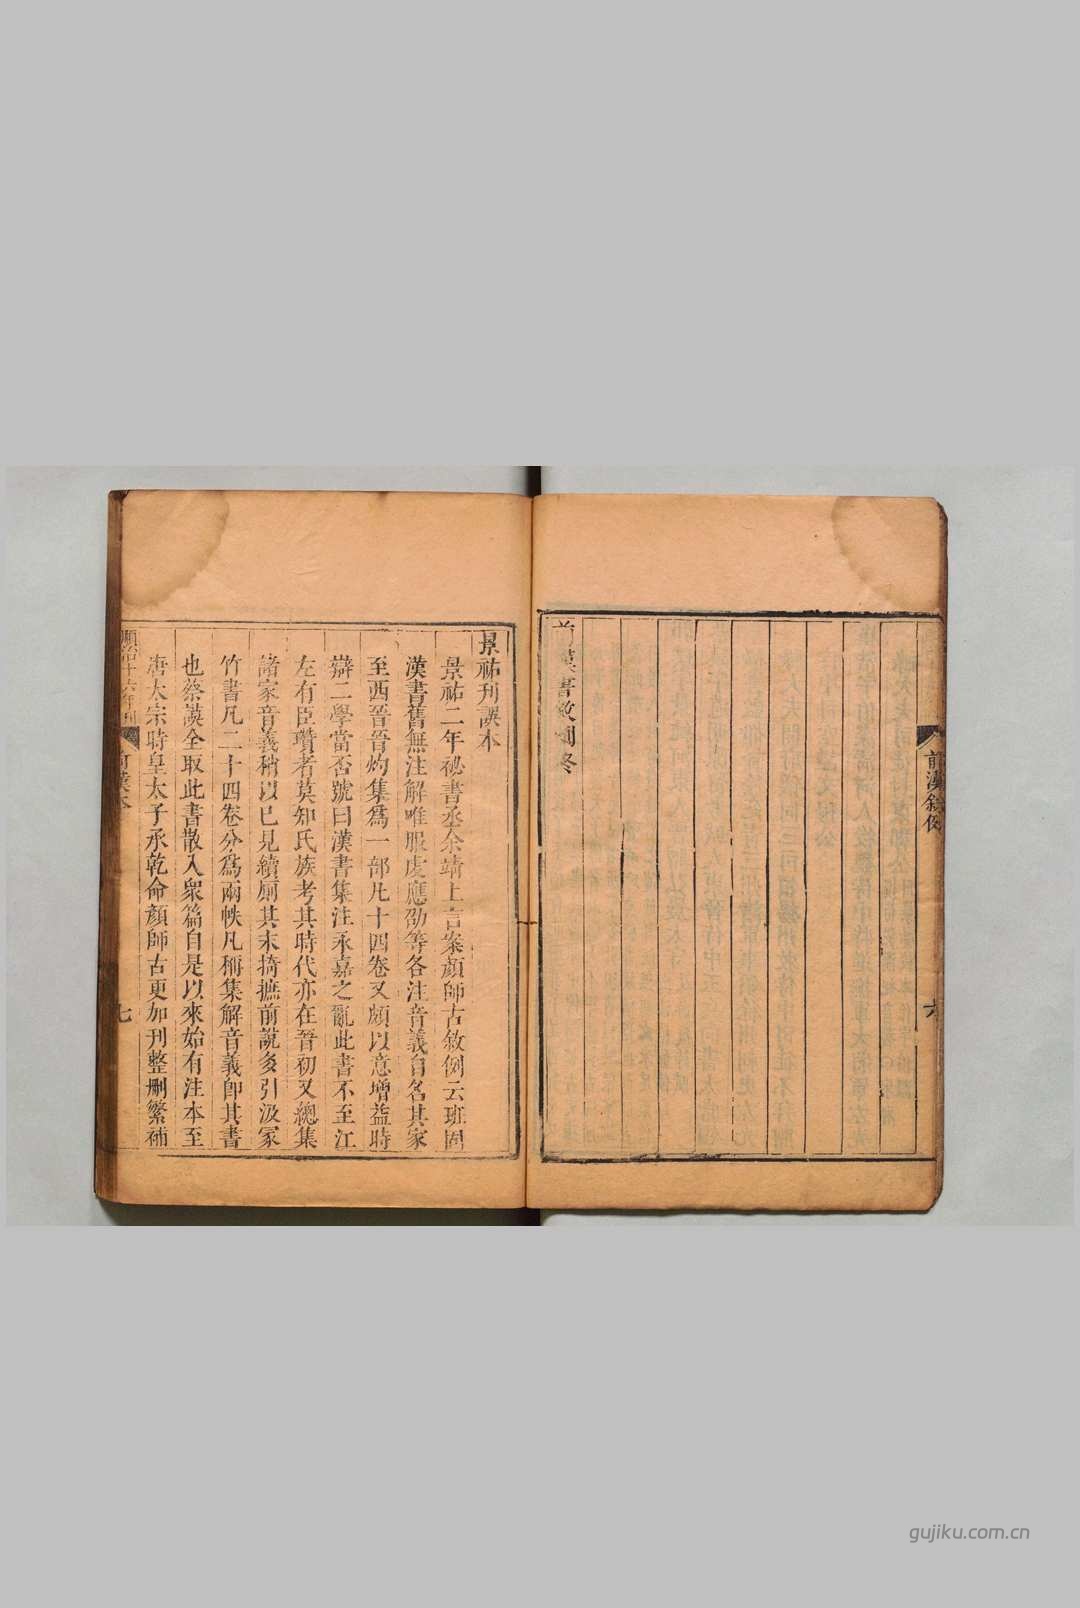 前漢書敘例終
前漢敘例
六
景祐刊誤本
景祐二年祕書丞余靖上言案顏師古敘例云班固
漢書舊無注解唯服虔應劭等各注音義自名其家
至西晉晉灼集為一部凡十四卷又頗以意增益時
辯二學當否號曰漢書集注永嘉之亂此書不至江
左有臣瓚者莫知氏族考其時代亦在晉初又總集
諸家音義稍以已見續廁其末掎摭前說多引汲冢
竹書凡二十四卷分為兩帙凡稱集解音義即其書
也蔡謨全取此書散入衆篇自是以來始有注本至
唐太宗時皇太子承乾命顏師古更加刊整刪繁補
順治十六年刊
七
gujiku.com.cn